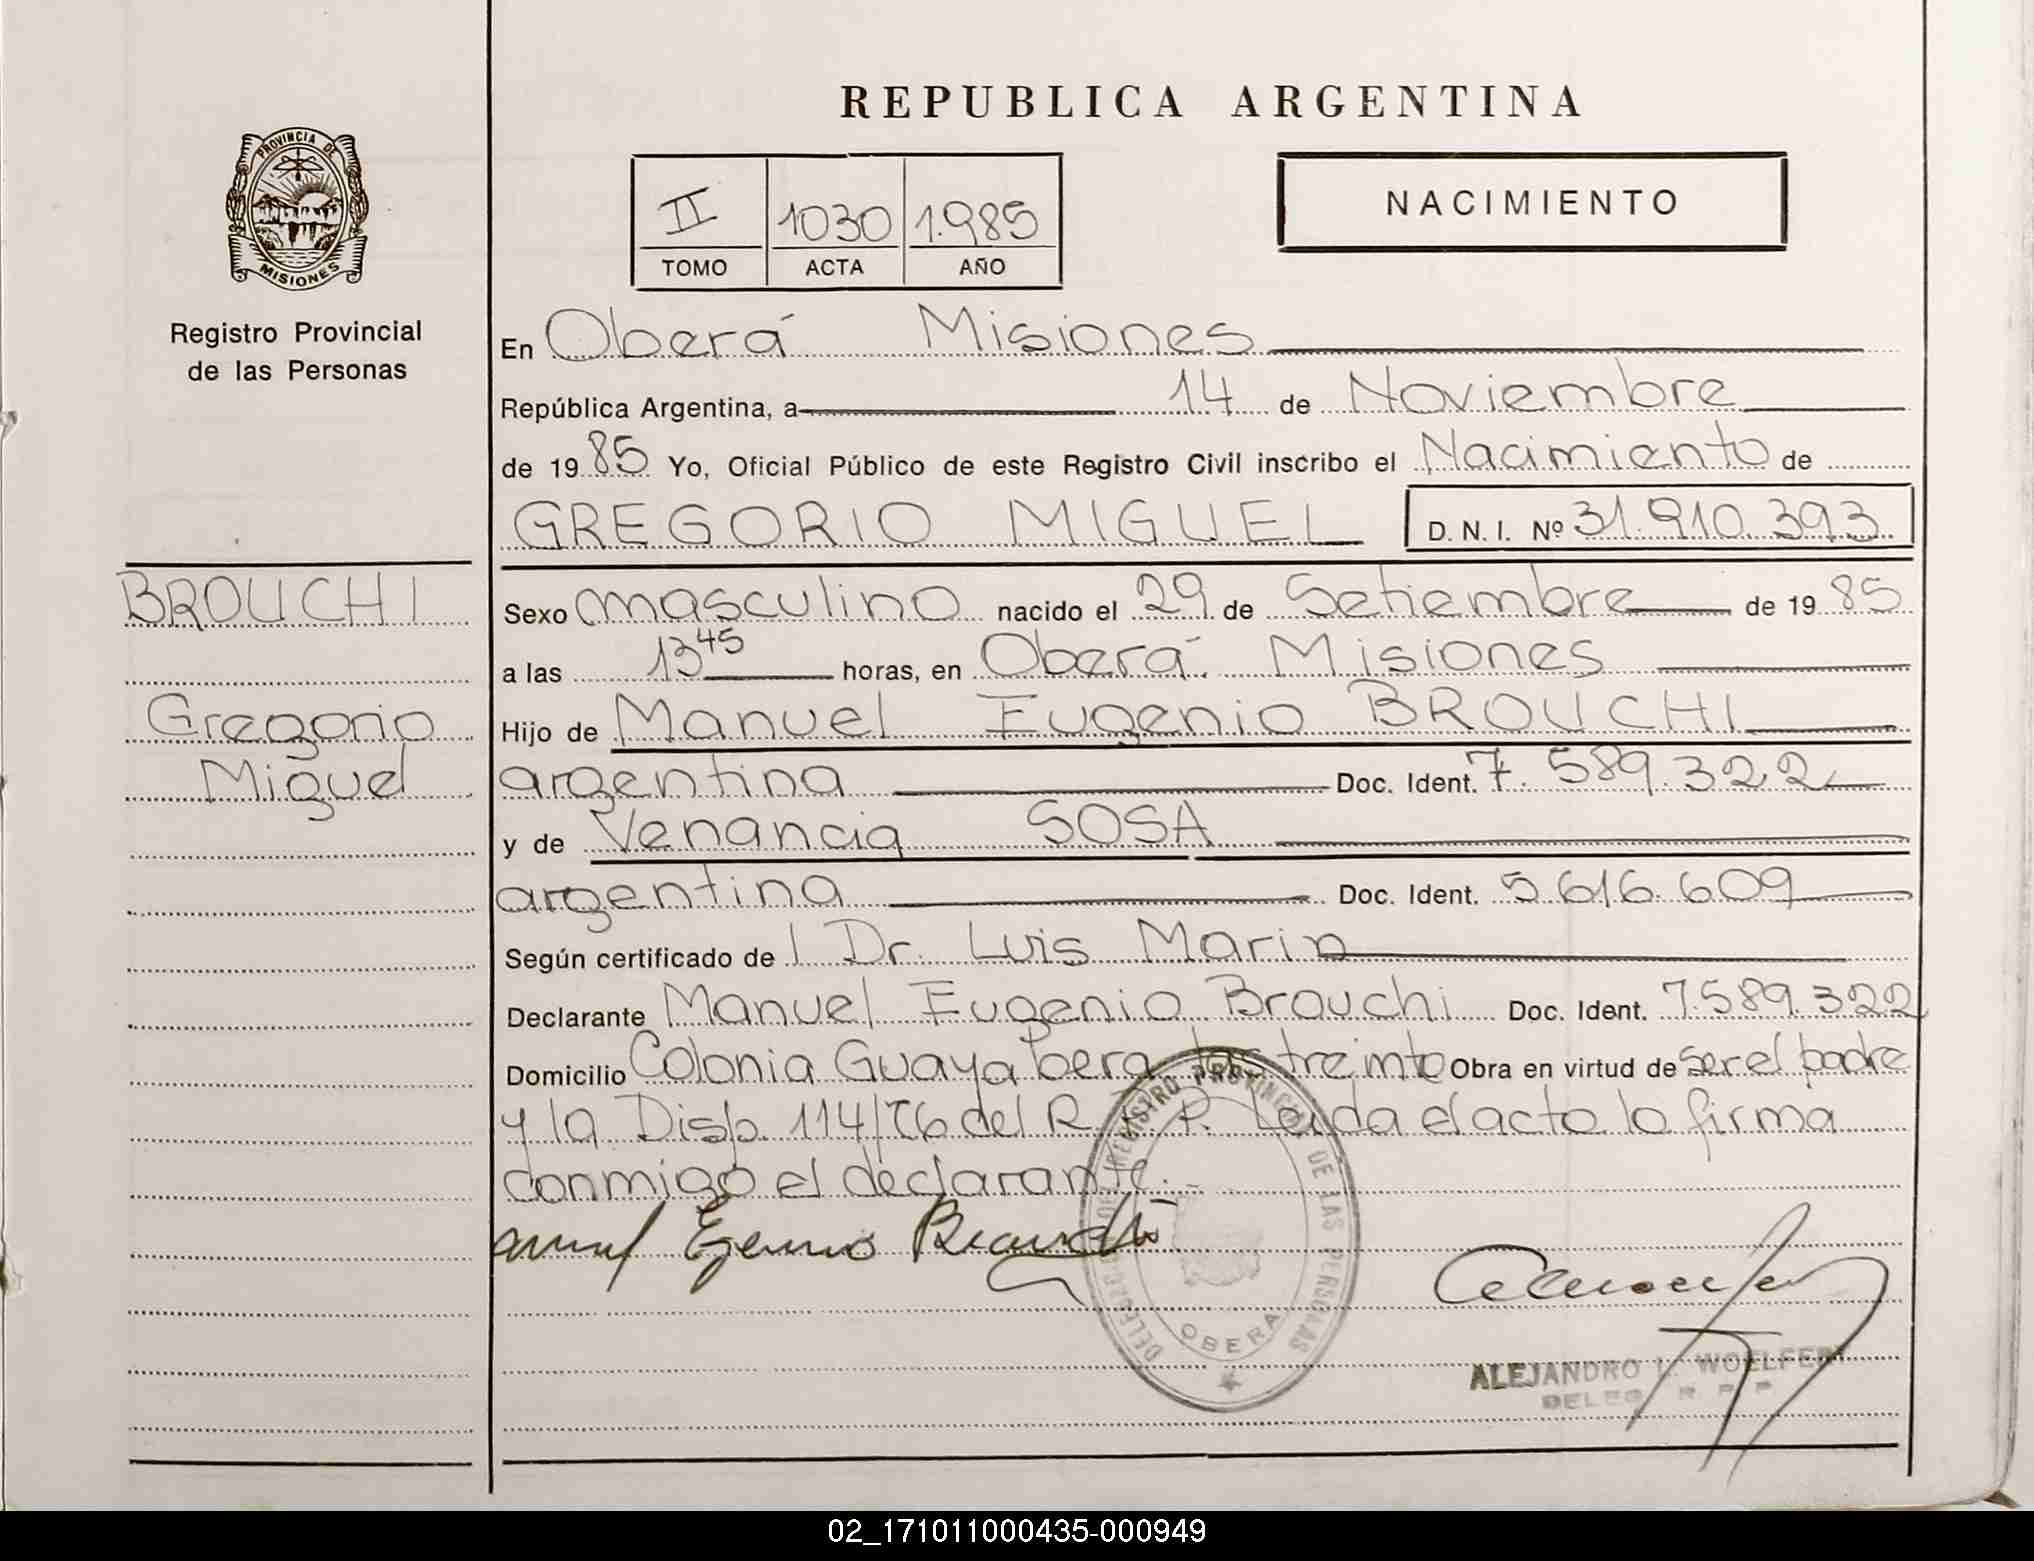 REPUBLICA ARGENTINA
PROVINCIA DE
MISIONES
II 1030 1.985
TOMO ACTA AÑO
NACIMIENTO
Registro Provincial
de las Personas
En Oberá Misiones
República Argentina, a 14 de Noviembre
de 1985 Yo, Oficial Público de este Registro Civil inscribo el Nacimiento de
GREGORIO MIGUEL D. N. I. Nº 31.910.393
BROUCHI
Gregorio
Miguel
Sexo masculino nacido el 29 de Setiembre de 1985
a las 13 45 horas, en Oberá Misiones
Hijo de Manuel Eugenio BROUCHI
argentina Doc. Ident. 7.589.322
y de Venancia SOSA
argentina Doc. Ident. 5.616.609
Según certificado de l Dr. Luis Marin
Declarante Manuel Eugenio Brouchi Doc. Ident. 7.589.322
Domicilio Colonia Guayabera las treinta Obra en virtud de ser el padre
y la Disp. 114/76 del R. P. Leida el acto lo firma
conmigo el declarante.
DELEGACION REGISTRO PROVINCIAL DE LAS PERSONAS
OBERA
ALEJANDRO L. WOELFERT
DELEG. R. P. P.
02_171011000435-000949